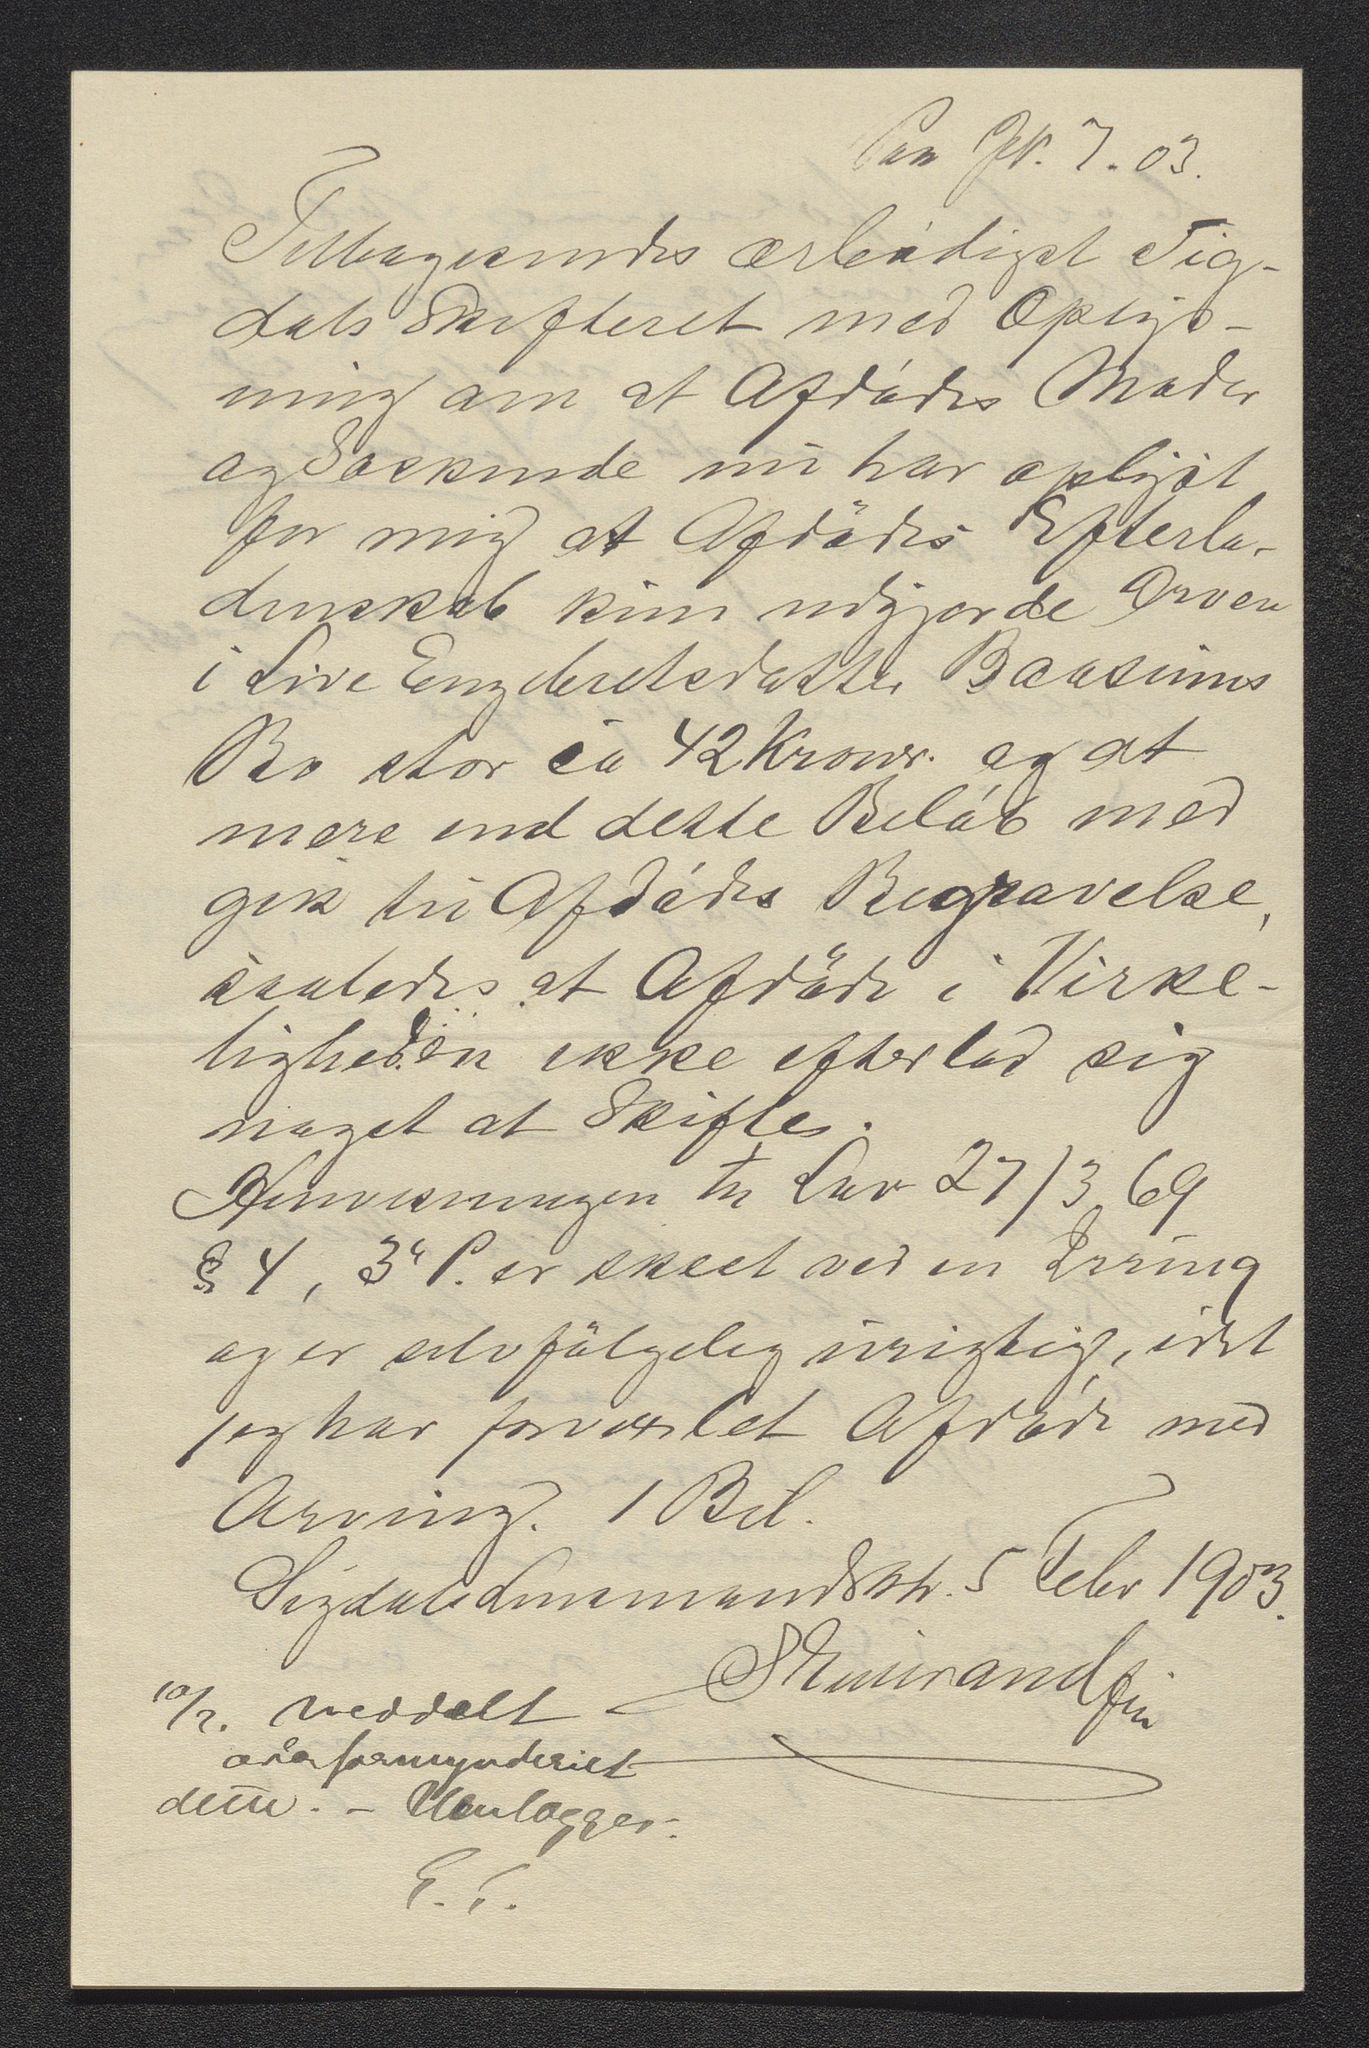 Paa Jk. 7. 03.
Tilbagesendes ærbödigst Sig-
dals Skifteret med Oplys-
ning om at Afdödes Moder
og Söskende nu har oplyst
for mig at Afdödes Efterla-
denskab kun udgjorde Arven
i Live Engebretsdatter Baasums
Bo stor ca 42 Kroner. og at
mere end dette Belöb med
gik til Afdödes Begravelse,
saaledes at Afdöde i Virke-
ligheden ikke efterlod sig
noget at Skifte.
Henvisningen til Lov 27/3 69
§ 4, 3die P. er skeet ved en Irring
og er selvfölgelig urigtig, idet
jeg har forvexlet Afdöde med
Arving. 1 Bil.
Sigdals Lensmandsktr. 5 Febr 1903.
10/2. meddelt
overformynderiet
dette. – Henlægges.
E. T.